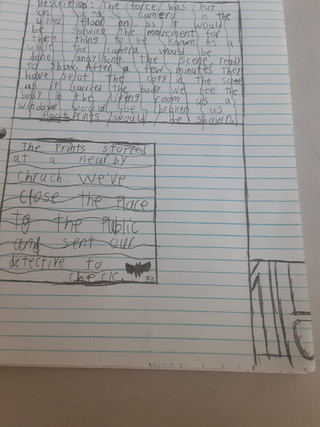 Description: The force has put
on a camera in the
upper floor on as it would
be showing the movement for
the thing to be known as a
while the camera would be
done analysing the scene ready
to show. After a few minutes they
have spot the copy in the scene
as it carried the body we see the
body in the living room as a
window would be broken as
foot prints would be shown.
The prints stopped
at a nearby
chruch we've
close the place
to the public
and sent our
detective to
check.